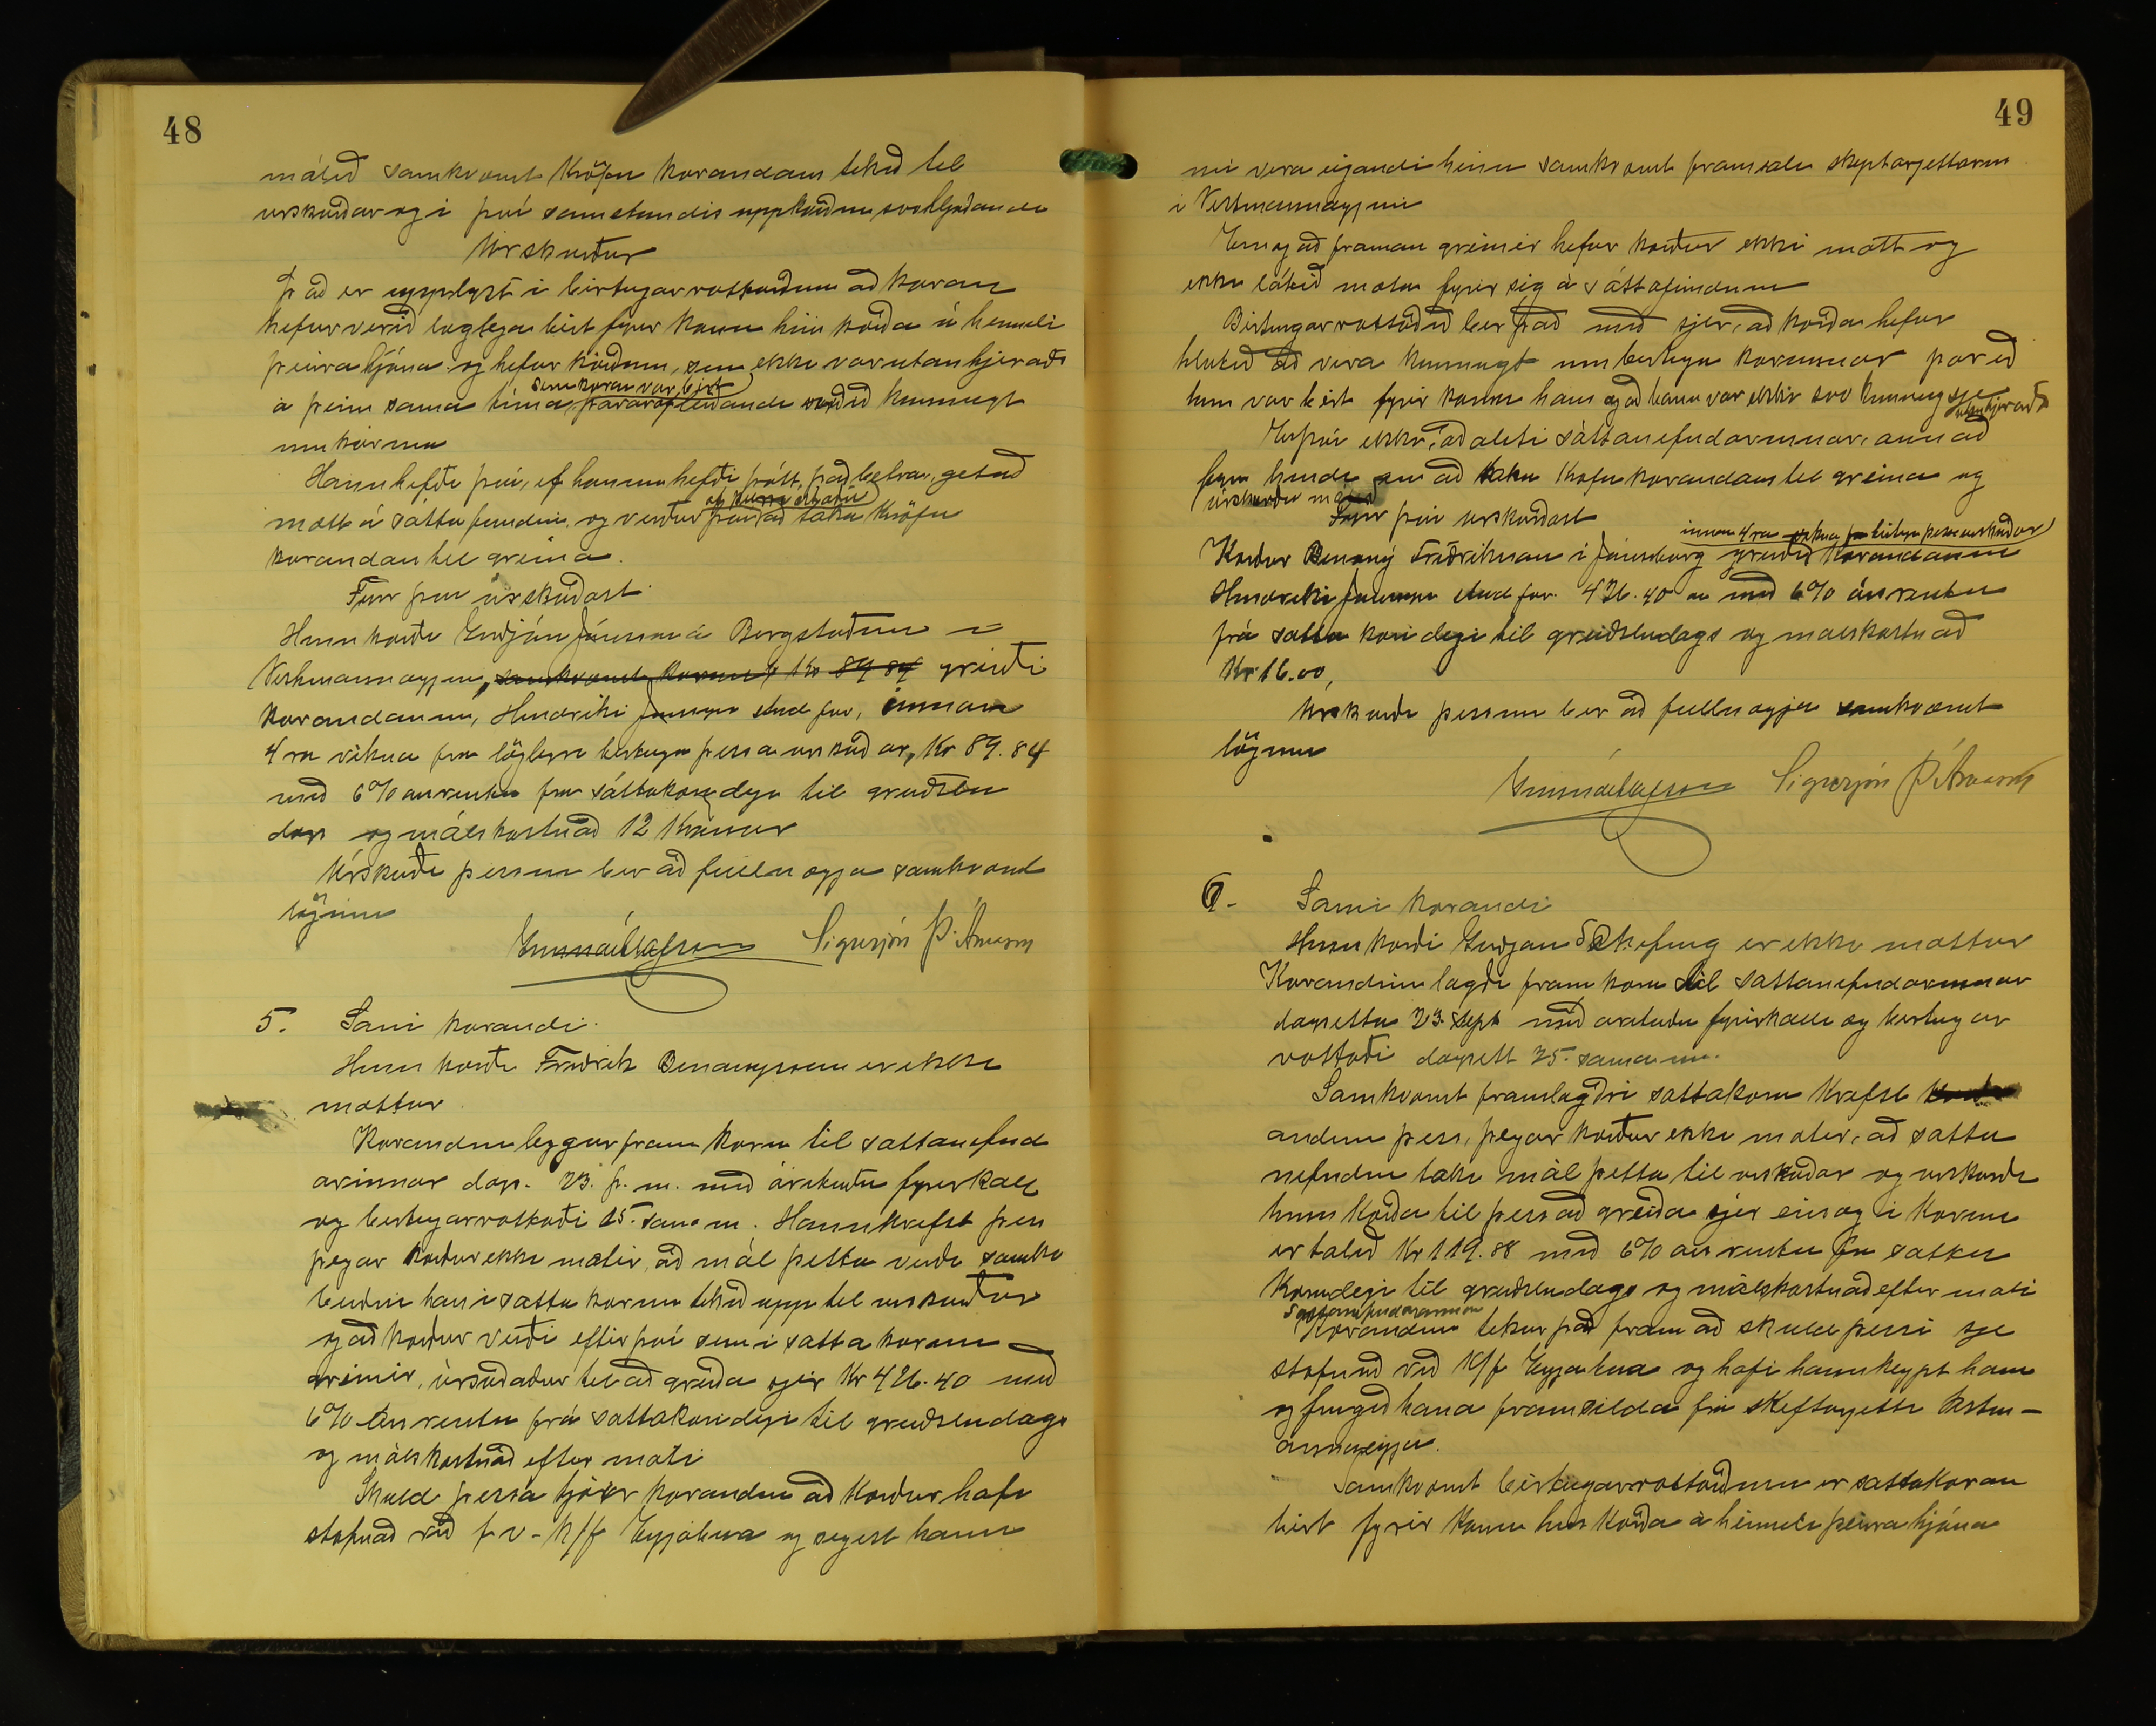 48
málið samkvæmt kröfu kærandans tekið til
urskurðar og í því samstundis uppkveðinn svohljóðandi
Úrskurður
Það er upplyst í birtingarvottorðinu að kæran
hefur verið löglega birt fyrir konu hins kærða á heimili
þeirra hjóna og hefur kærðum, sem ekki var utanhjeraðs
sem kæran var birt
á þeim sama tíma, þar af leiðandi orðið kunnugt
um kæruna
Hann hefði því, ef honum hefði þótt það betra, getað
af þessari ástæðu
mætt á sáttafundi, og verður því að taka kröfu
kærandans til greina.
Fyrir því úrskurðast
Hinn kærði Guðjón Jónsson á Bergstöðum í
Vestmannaeyjum, samkvæmt kærunni Kr 89 84 greiði
kærandanum, Hinriki Jónssyni stud jur, innan
4ra vikna frá löglegri birtingu þessa urskurðar, Kr 89.84
með 6% ársrentu frá sáttakærudegi til greiðslu
dags og málskostnað 12 Krónur
Úrskurði þessum ber að fullnægja samkvæmt
lögum
Gunnar Ólafsson Sigurjón Þ. Árnason
5. Sami kærandi.
Hinn kærði Friðrik Benonysson er ekki
mættur.
Kærandinn leggur fram kæru til sáttanefnd
arinnar dags. 23. f. m. með árituðu fyrirkalli
og birtingarvottorði 25. sama m. Hann krefst þess
þegar kærður ekki mætir, að mál þetta verði samkv
beiðni hans í sátta kærunni tekið upp til urskurðar
og að kærður verði eftir því sem í sátta kærunni
greinir, úrskurðaður til að greiða sjer Kr 426.40 með
6% ársrentu frá sáttakærudegi til greiðsludags
og málskostnað eftir mati
Skuld þessa tjáir kærandinn að kærður hafi
stofnað við f v - K/f Eyjabúa og segist hann
49
nú vera eigandi hennar samkvæmt framsali skiptarjettarins
í Vestmannaeyjum
Eins og að framan greinir hefur kærður ekki mætt og
ekki látið mæta fyrir sig á sáttafundinum
Birtingarvottorðið ber það með sjer, að kærða hefur
hlotið að vera kunnugt um birtingu kærunnar þar eð
hún var birt fyrir konu hans og að hann var ekki svo kunnugt sje
utanhjeraðs
Er því ekki, að áliti sáttanefndarinnar, annað
fyrir hendi en að taka kröfu kærandans til greina og
úrskurða málið
Fyrir því urskurðast
innan 4ra vikna frá birtingu þessa urskurðar
Kærður Benoný Friðriksson í Jómsborg greiði kærandanum
Hinriki Jónssyni stud jur. 426.40 au með 6% ársrentu
frá sátta kærudegi til greiðsludags og málskostnað
Kr 16.00,
Urskurði þessum ber að fullnægja samkvæmt
lögum
Gunnar Ólafsson Sigurjón Þ. Árnason
6. Sami kærandi
Hinn kærði Guðjón Skaftfeng er ekki mættur
Kærandinn lagði fram kæru til sáttanefndarinnar
dagsetta 23. sept með árituðu fyrirkalli og birtingar
vottorði dagsett 25. sama m.
Samkvæmt framlagðri sáttakæru krefst kær
andinn þess, þegar kærður ekki mætir, að sátta
nefndin taki mál þetta til urskurðar og urskurði
hinn kærða til þess að greiða sjer eins og í kærunni
er talið Kr 119.88 með 6% ársrentu frá sátta
kærudegi til greiðsludags og málskostnað eftir mati
sáttanefndarinnar
Kærandinn tekur það fram að skuld þessi sje
stofnuð við K/f Eyjabúa og hafi hann keypt hana
og fengið hana framselda frá skiftarjetti Vestm-
annaeyja.
Samkvæmt birtingarvottorðinu er sáttakæran
birt fyrir konu hins kærða á heimili þeirra hjóna